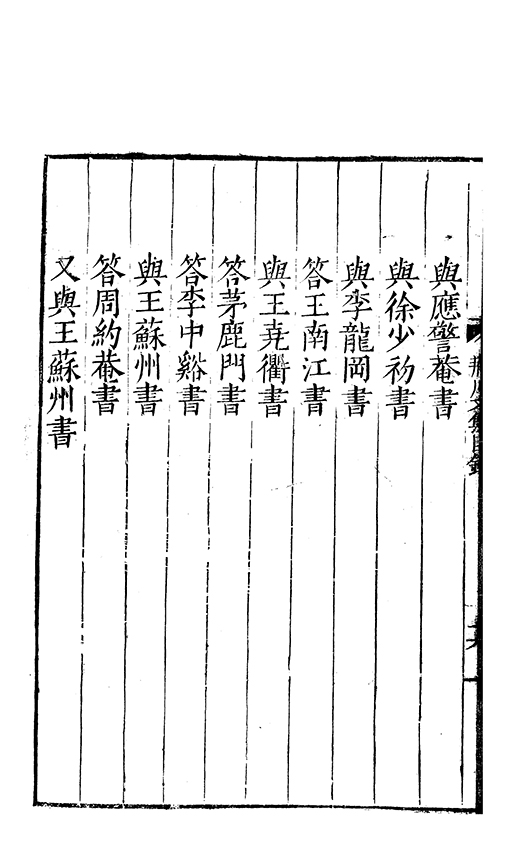 與應警菴書
與徐少初書
與李龍岡書
答王南江書
與王堯衢書
答茅鹿門書
答李中谿書
與王蘇州書
答周約菴書
又與王蘇州書